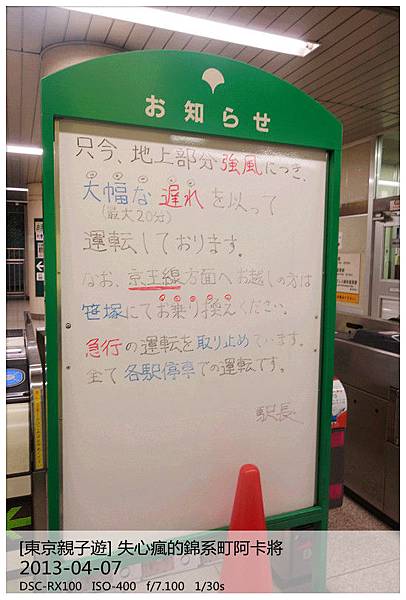 お知らせ
只今、地上部分強風につき、
大幅な遅れを以って
(最大20分)
運転しております。
なお、京王線方面へお越しの方は
笹塚にてお乗り換えください。
急行の運転を取り止めています。
全て各駅停車での運転です。
駅長
[東京親子遊] 失心瘋的錦系町阿卡將
2013-04-07
DSC-RX100 ISO-400 f/7.100 1/30s